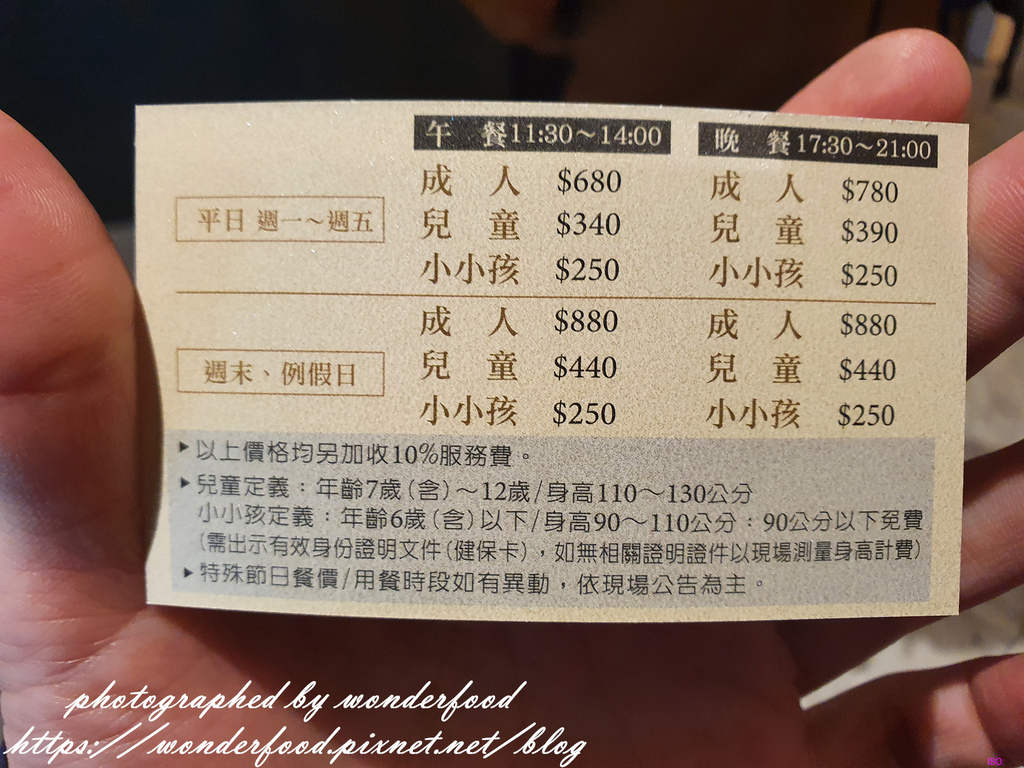 午 餐11:30～14:00 晚 餐17:30～21:00
平日 週一～週五
成 人 $680 成 人 $780
兒 童 $340 兒 童 $390
小小孩 $250 小小孩 $250
週末、例假日
成 人 $880 成 人 $880
兒 童 $440 兒 童 $440
小小孩 $250 小小孩 $250
▸以上價格均另加收10%服務費。
▸兒童定義：年齡7歲(含)～12歲/身高110～130公分
小小孩定義：年齡6歲(含)以下/身高90～110公分：90公分以下免費
(需出示有效身份證明文件(健保卡)，如無相關證明證件以現場測量身高計費)
▸特殊節日餐價/用餐時段如有異動，依現場公告為主。
photographed by wonderfood
https://wonderfood.pixnet.net/blog
ISO: